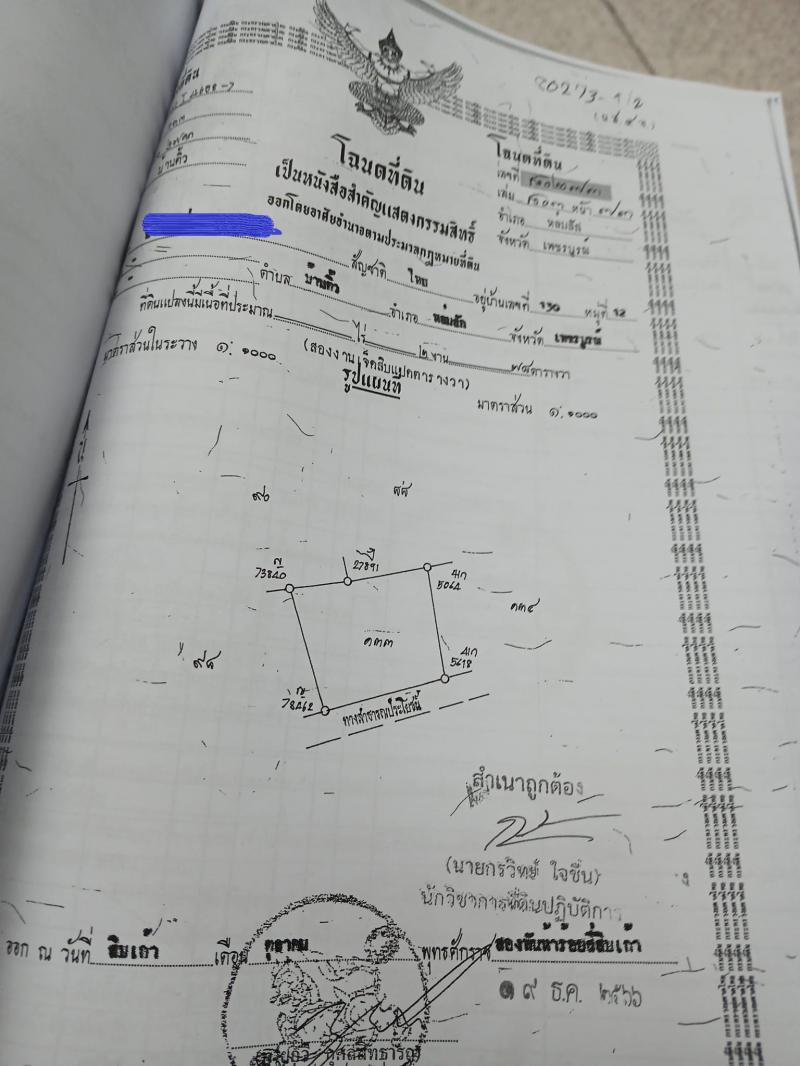 80273-1/2
ที่ดิน
บ้านติ้ว
โฉนดที่ดิน
เป็นหนังสือสำคัญแสดงกรรมสิทธิ์
ออกโดยอาศัยอำนาจตามประมวลกฎหมายที่ดิน
โฉนดที่ดิน
เลขที่
เล่ม หน้า
อำเภอ หล่มสัก
จังหวัด เพชรบูรณ์
สัญชาติ ไทย อยู่บ้านเลขที่ 130 หมู่ที่ 12
ตำบล บ้านติ้ว อำเภอ หล่มสัก จังหวัด เพชรบูรณ์
ที่ดินแปลงนี้มีเนื้อที่ประมาณ ไร่ ๒ งาน ๗๘ ตารางวา
(สองงานเจ็ดสิบแปดตารางวา)
มาตราส่วนในระวาง ๑:๑๐๐๐ รูปแผนที่ มาตราส่วน ๑:๑๐๐๐
น
๙๐ ๘๘
27891
73840
5064
๑๓๔
๑๓๓
๙๘
5618
78462
ทางสาธารณประโยชน์
สำเนาถูกต้อง
(นายกรวิทย์ ใจชื่น)
นักวิชาการที่ดินปฏิบัติการ
ออก ณ วันที่ สิบเก้า เดือน ตุลาคม พุทธศักราช สองพันห้าร้อยสี่สิบเก้า
๑๙ ธ.ค. ๒๕๖๖